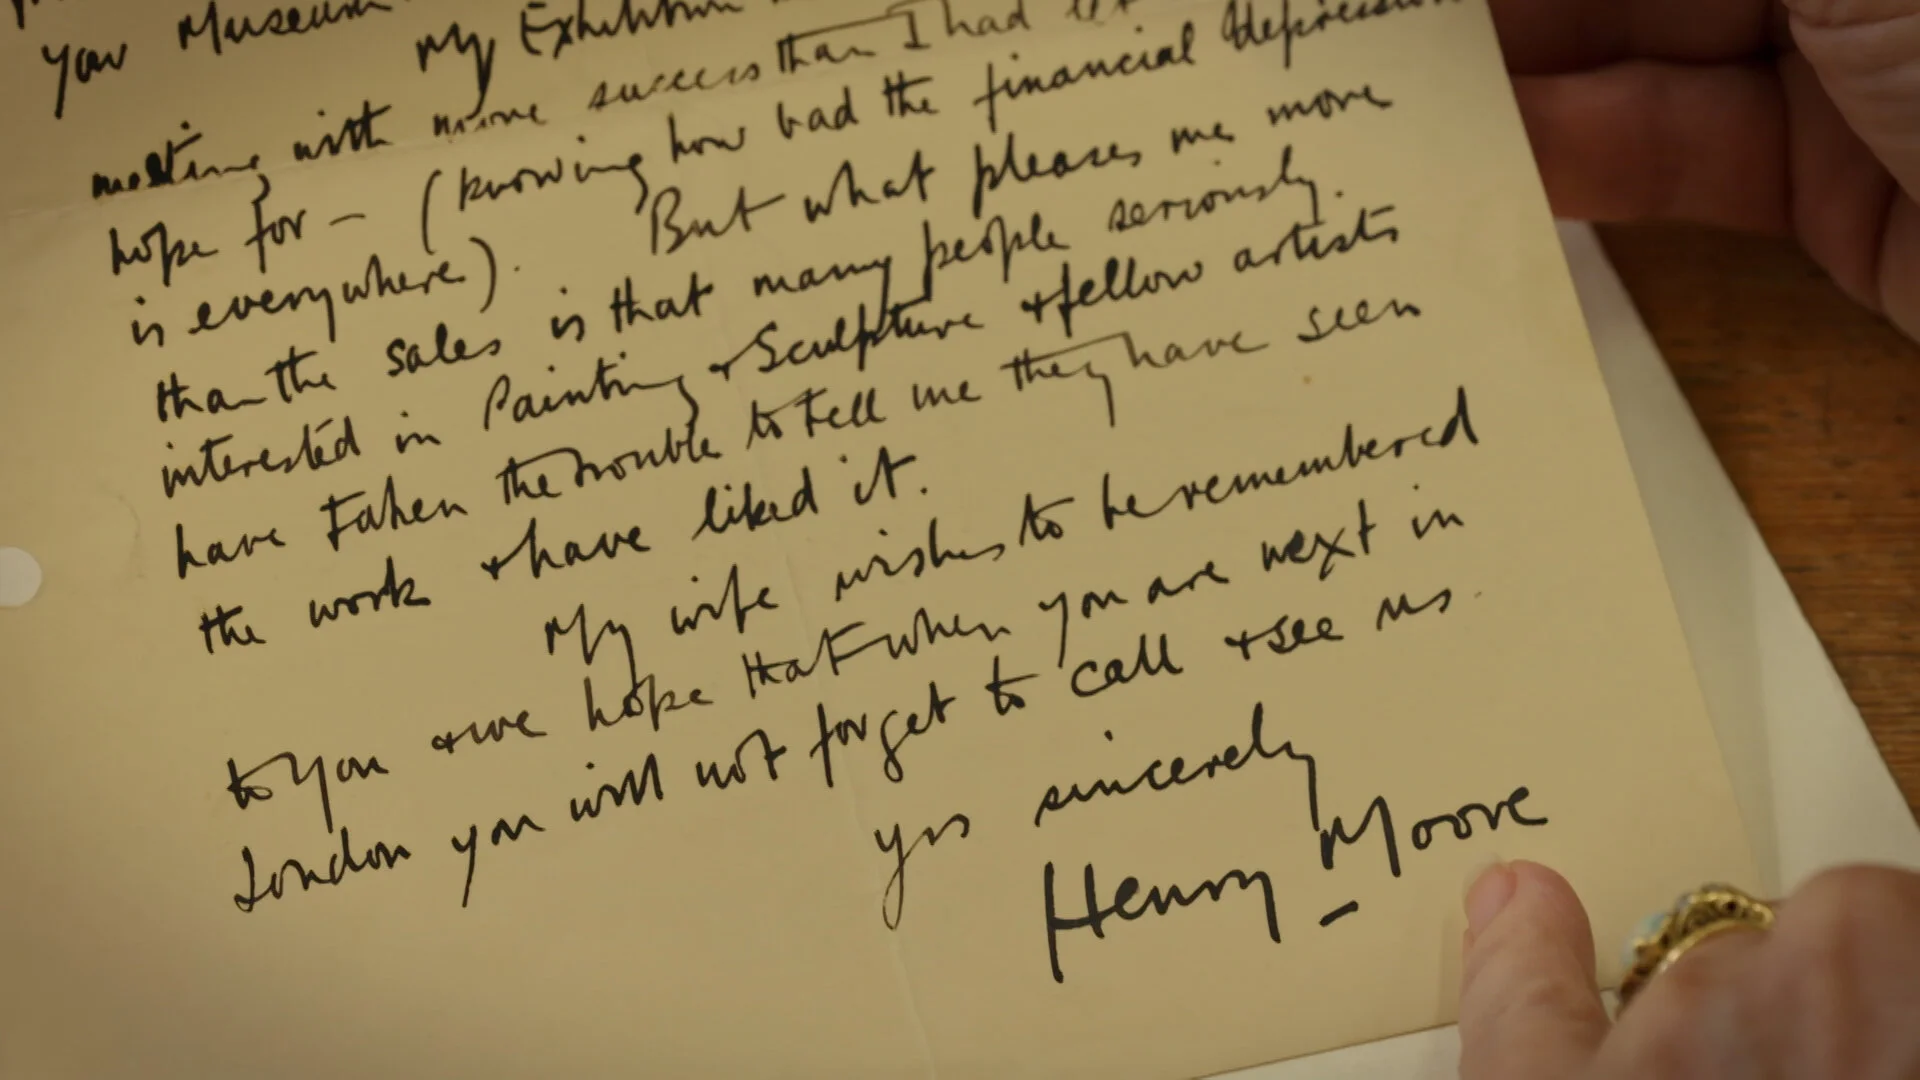 your Museum
My Exhibition
meeting with more success than I had let
hope for – (knowing how bad the financial depression
is everywhere). But what pleases me more
than the sales is that many people seriously
interested in Painting + Sculpture + fellow artists
have taken the trouble to tell me they have seen
the work + have liked it.
My wife wishes to be remembered
to you + we hope that when you are next in
London you will not forget to call + see us.
yrs sincerely
Henry Moore